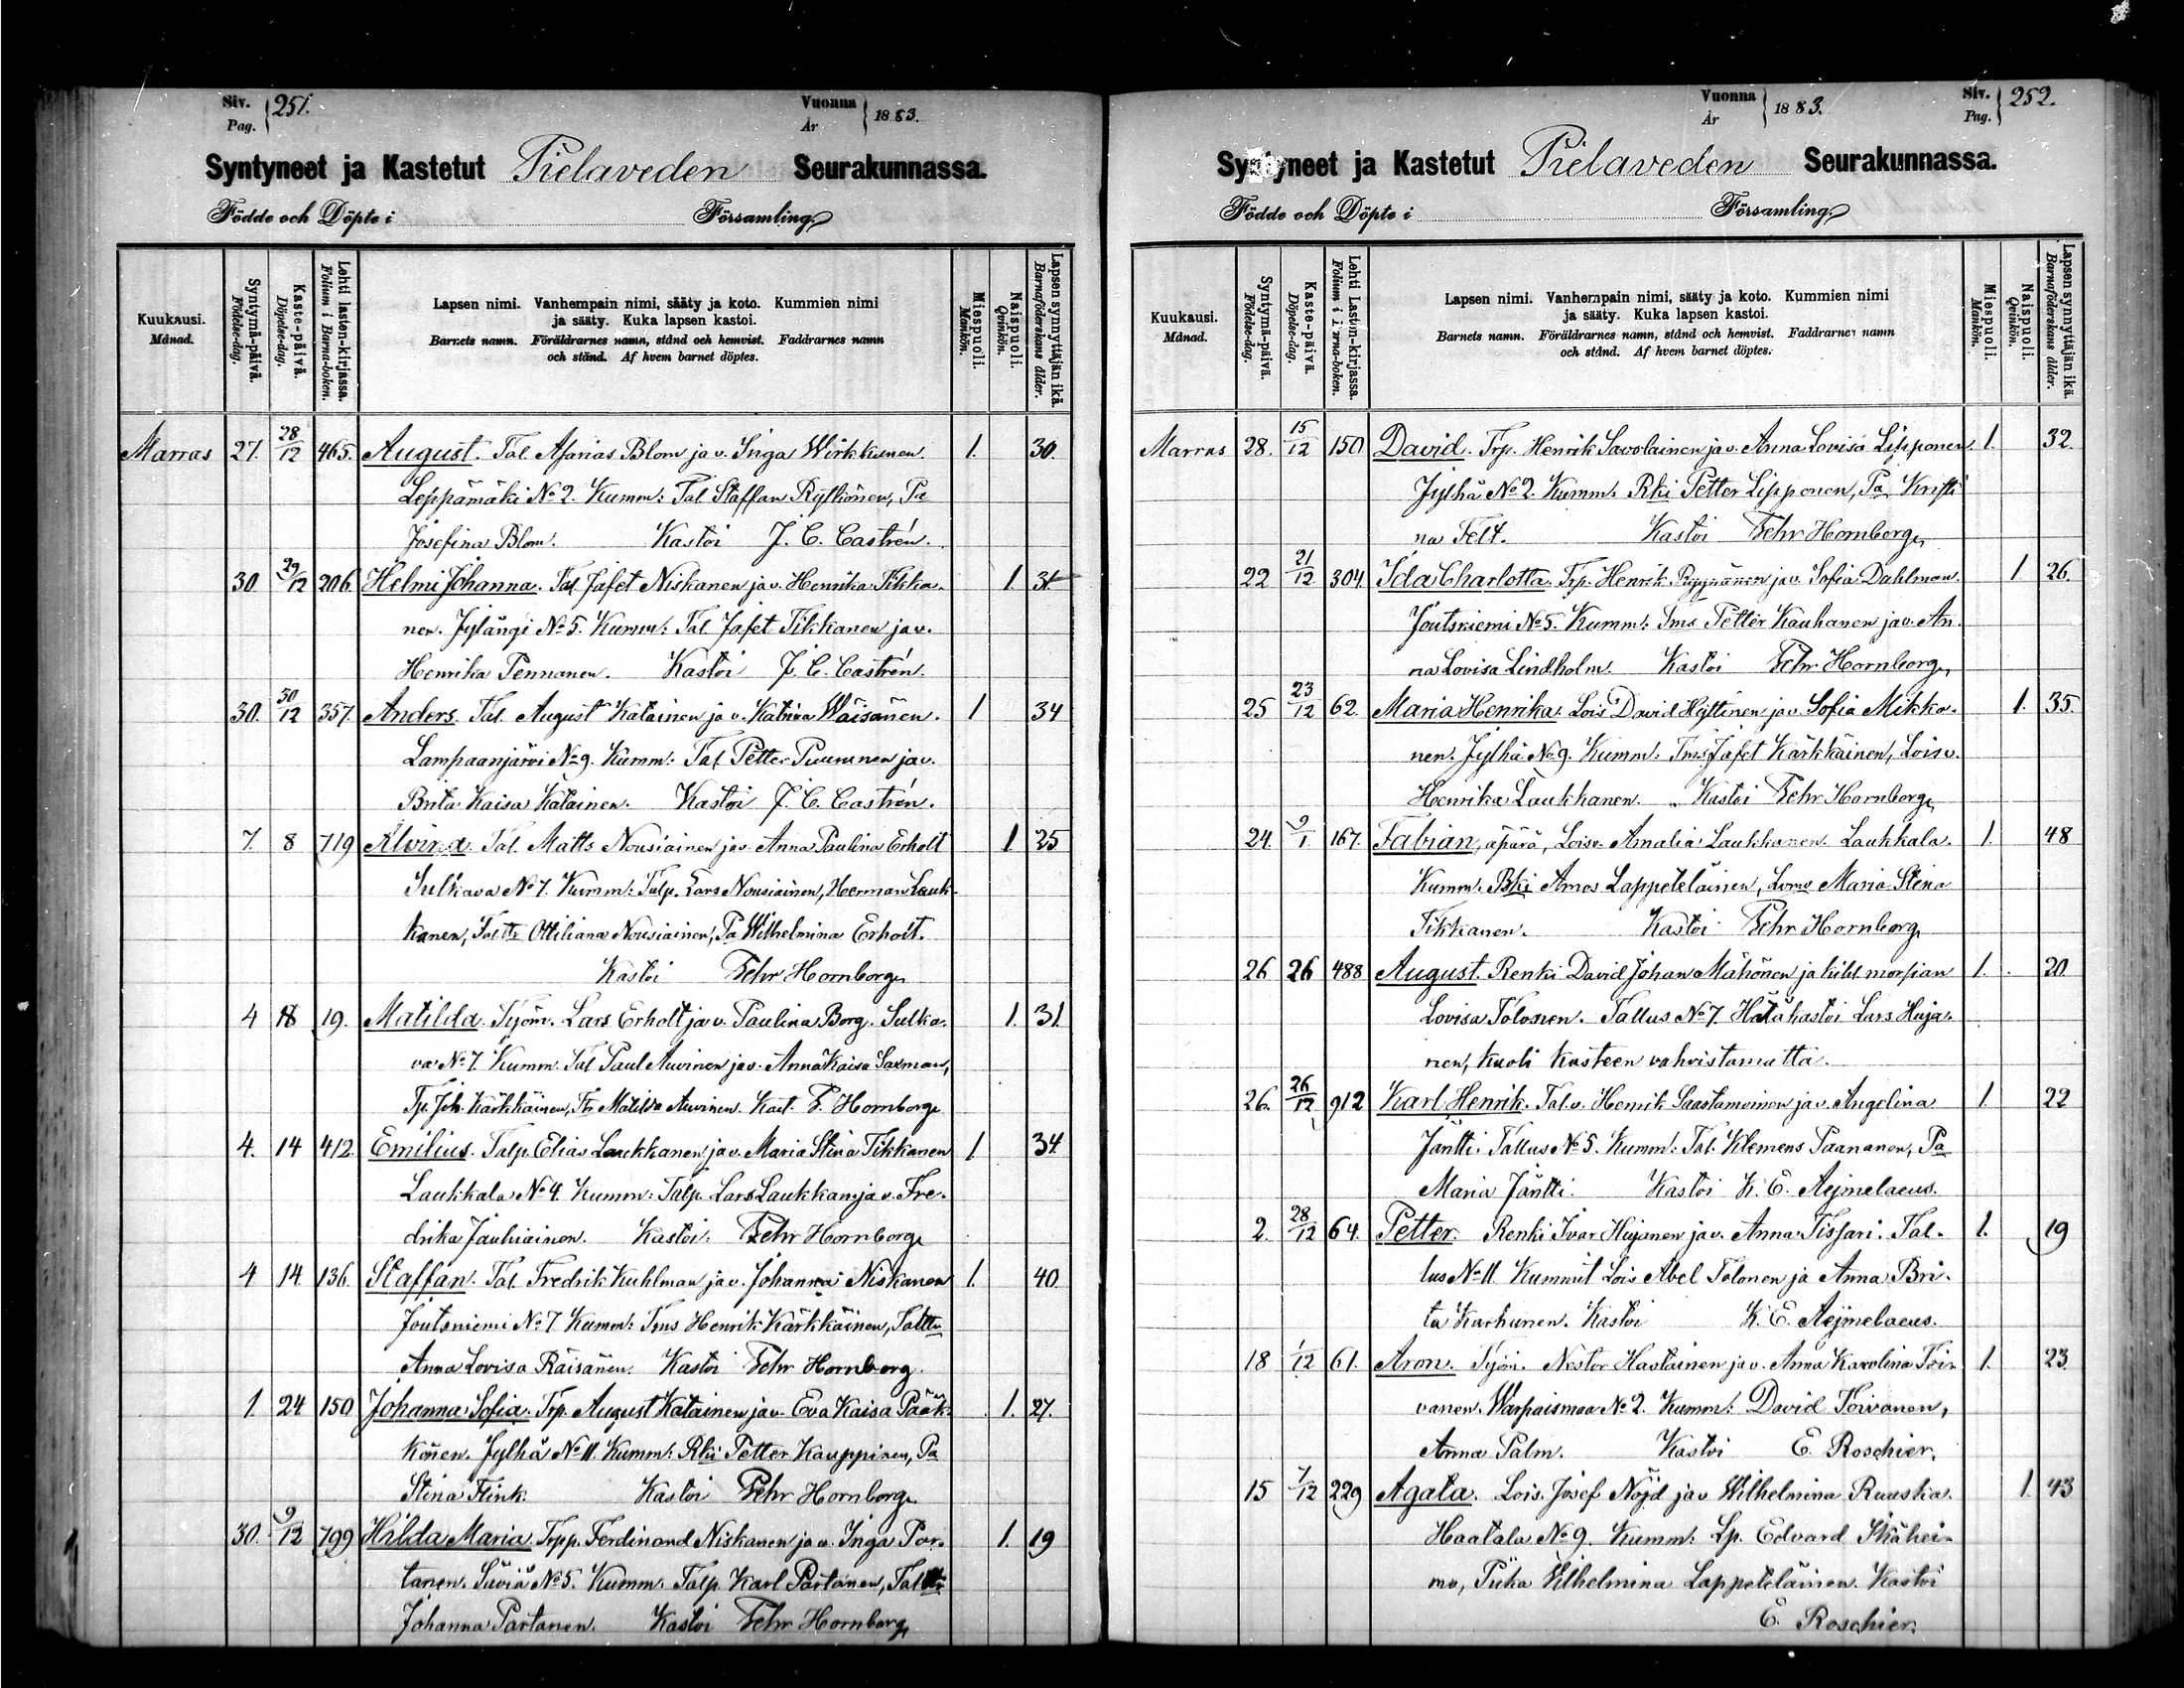 Siv. Pag. 251. Vuonna År 1883.
Syntyneet ja Kastetut Pielaveden Seurakunnassa.
Födde och Döpte i Församling
Kuukausi. Månad.
Syntymä-päivä. Födelse-dag.
Kaste-päivä. Döpelse-dag.
Lehti lasten-kirjassa. Folium i Barna-boken.
Lapsen nimi. Vanhempain nimi, sääty ja koto. Kummien nimi
ja sääty. Kuka lapsen kastoi.
Barnets namn. Föräldrarnes namn, stånd och hemvist. Faddrarnes namn
och stånd. Af hvem barnet döptes.
Miespuoli. Mankön.
Naispuoli. Qvinkön.
Lapsen synnyttäjän ikä. Barnaföderskans ålder.
Marras 27. 28/12 465. August. Tal. Asarias Blom ja v. Inga Wirkkunen. 1. 30.
Leppämäki No 2. Kumm: Tal Staffan Rytkönen, Pa
Josefina Blom. Kastoi J. C. Castrén.
30 29/12 206. Helmi Johanna. Tal. Jafet Niskanen ja v. Henrika Tikka- 1. 31
nen. Jylängi No 5. Kumm: Tal Jafet Tikkanen ja v.
Henrika Pennanen. Kastoi J. C. Castrén.
30. 30/12 357. Anders. Tal. August Katainen ja v. Katrina Wäisänen. 1 34
Lampaanjärvi No 9. Kumm: Tal Petter Puumnen ja v.
Brita Kaisa Katainen. Kastoi J. C. Castrén.
7. 8 719 Alvina. Tal. Matts Nousiainen ja v. Anna Paulina Erholt 1. 25
Sulkava No 7. Kumm: Talp. Lars Nousiainen, Herman Lauk-
kanen, Taltt. Ottiliana Nousiainen, Pa Wilhelmina Erholt.
Kastoi Fehr Hornborg
4 18 19. Matilda. Työm. Lars Erholt ja v. Paulina Borg. Sulka- 1. 31.
va No 7. Kumm. Tal Paul Auvinen ja v. Anna Kaisa Saxman,
Tp. Joh. Kärkkäinen, Tt. Matilda Auvinen. Kast. F. Hornborg
4. 14 412. Emilius. Talp. Elias Laukkanen ja v. Maria Stina Tikkanen 1 34.
Laukkala No 4. Kumm: Talp. Lars Laukkan. ja v. Fre-
drika Jauhiainen. Kastoi. Fehr Hornborg
4 14. 136. Staffan. Tal. Fredrik Kuhlman ja v. Johanna Niskanen 1. 40
Joutsniemi No 7 Kumm: Tms Henrik Kärkkäinen, Taltt
Anna Lovisa Räisänen. Kastoi Fehr Hornborg.
1. 24 150 Johanna Sofia. Trp. August Katainen ja v. Eva Kaisa Pääk- 1. 27.
könen. Jylhä No 11. Kumm: Rki Petter Kauppinen, Pa
Stina Flink. Kastoi Fehr Hornborg.
30. 9/12 799 Hilda Maria. Trpp. Ferdinand Niskanen ja v. Inga Par- 1. 19
tanen. Säviä No 5. Kumm. Talp. Karl Partanen, Taltt
Johanna Partanen. Kastoi Fehr Hornborg
Vuonna År 1883. Siv. Pag. 252.
Syntyneet ja Kastetut Pielaveden Seurakunnassa.
Födde och Döpte i Församling
Kuukausi. Månad.
Syntymä-päivä. Födelse-dag.
Kaste-päivä. Döpelse-dag.
Lehti Lasten-kirjassa. Folium i Barna-boken.
Lapsen nimi. Vanhempain nimi, sääty ja koto. Kummien nimi
ja sääty. Kuka lapsen kastoi.
Barnets namn. Föräldrarnes namn, stånd och hemvist. Faddrarnes namn
och stånd. Af hvem barnet döptes.
Miespuoli. Mankön.
Naispuoli. Qvinkön.
Lapsen synnyttäjän ikä. Barnaföderskans ålder.
Marras 28. 15/12 150 David. Trp. Henrik Savolainen ja v. Anna Lovisa Lipponen. 1. 32.
Jylhä No 2. Kumm: Rki Petter Lipponen, Pa Kristi
na Felt. Kastoi Fehr Hornborg
22 21/12 304. Ida Charlotta. Trp. Henrik Ryynänen ja v. Sofia Dahlman. 1 26.
Joutsniemi No 5. Kumm: Tms Petter Kauhanen ja v. An-
na Lovisa Lindholm. Kastoi Fehr Hornborg
25 23/12 62. Maria Henrika. Lois David Hyttinen ja v. Sofia Mikko- 1. 35.
nen. Jylhä No 9. Kumm: Tms Jafet Kärkkäinen, Lois v.
Henrika Laukkanen. Kastoi Fehr Hornborg
24. 9/1 167. Fabian, äpärä, Lois v. Amalia Laukkanen. Laukkala. 1. 48
Kumm. Rki Amos Lappeteläinen, Maria Stina
Tikkanen. Kastoi Fehr Hornborg
26 26 488 August. Renki David Johan Mähönen ja kihl. morsian 1. 20
Lovisa Tolonen. Tallus No 7. Hätäkastoi Lars Huja-
nen, kuoli kasteen vahvistamatta.
26. 26/12 912 Karl Henrik. Tal. v. Henrik Saastamoinen ja v. Angelina 1. 22
Jäntti. Tallus No 5. Kumm: Tal. Klemens Paananen, Pa
Maria Jäntti. Kastoi K. E. Aejmelaeus.
2. 28/12 64. Petter. Renki Ivar Hujanen ja v. Anna Tissari. Tal- 1. 19
lus No 11. Kummit Lois Abel Tolonen ja Anna Bri-
ta Karhunen. Kastoi K. E. Aejmelaeus.
18 1/12 61. Aron. Työm. Nestor Hastainen ja v. Anna Karolina Toi- 1. 23.
vanen. Warpaismaa No 2. Kumm: David Toivanen,
Anna Palm. Kastoi E. Roschier.
15 7/12 229 Agata. Lois. Josef Nöjd ja v Wilhelmina Ruuska. 1. 43
Haatala No 9. Kumm: Lp. Edvard Ikähei-
mo, Piika Vilhelmina Lappeteläinen. Kastoi
E. Roschier.